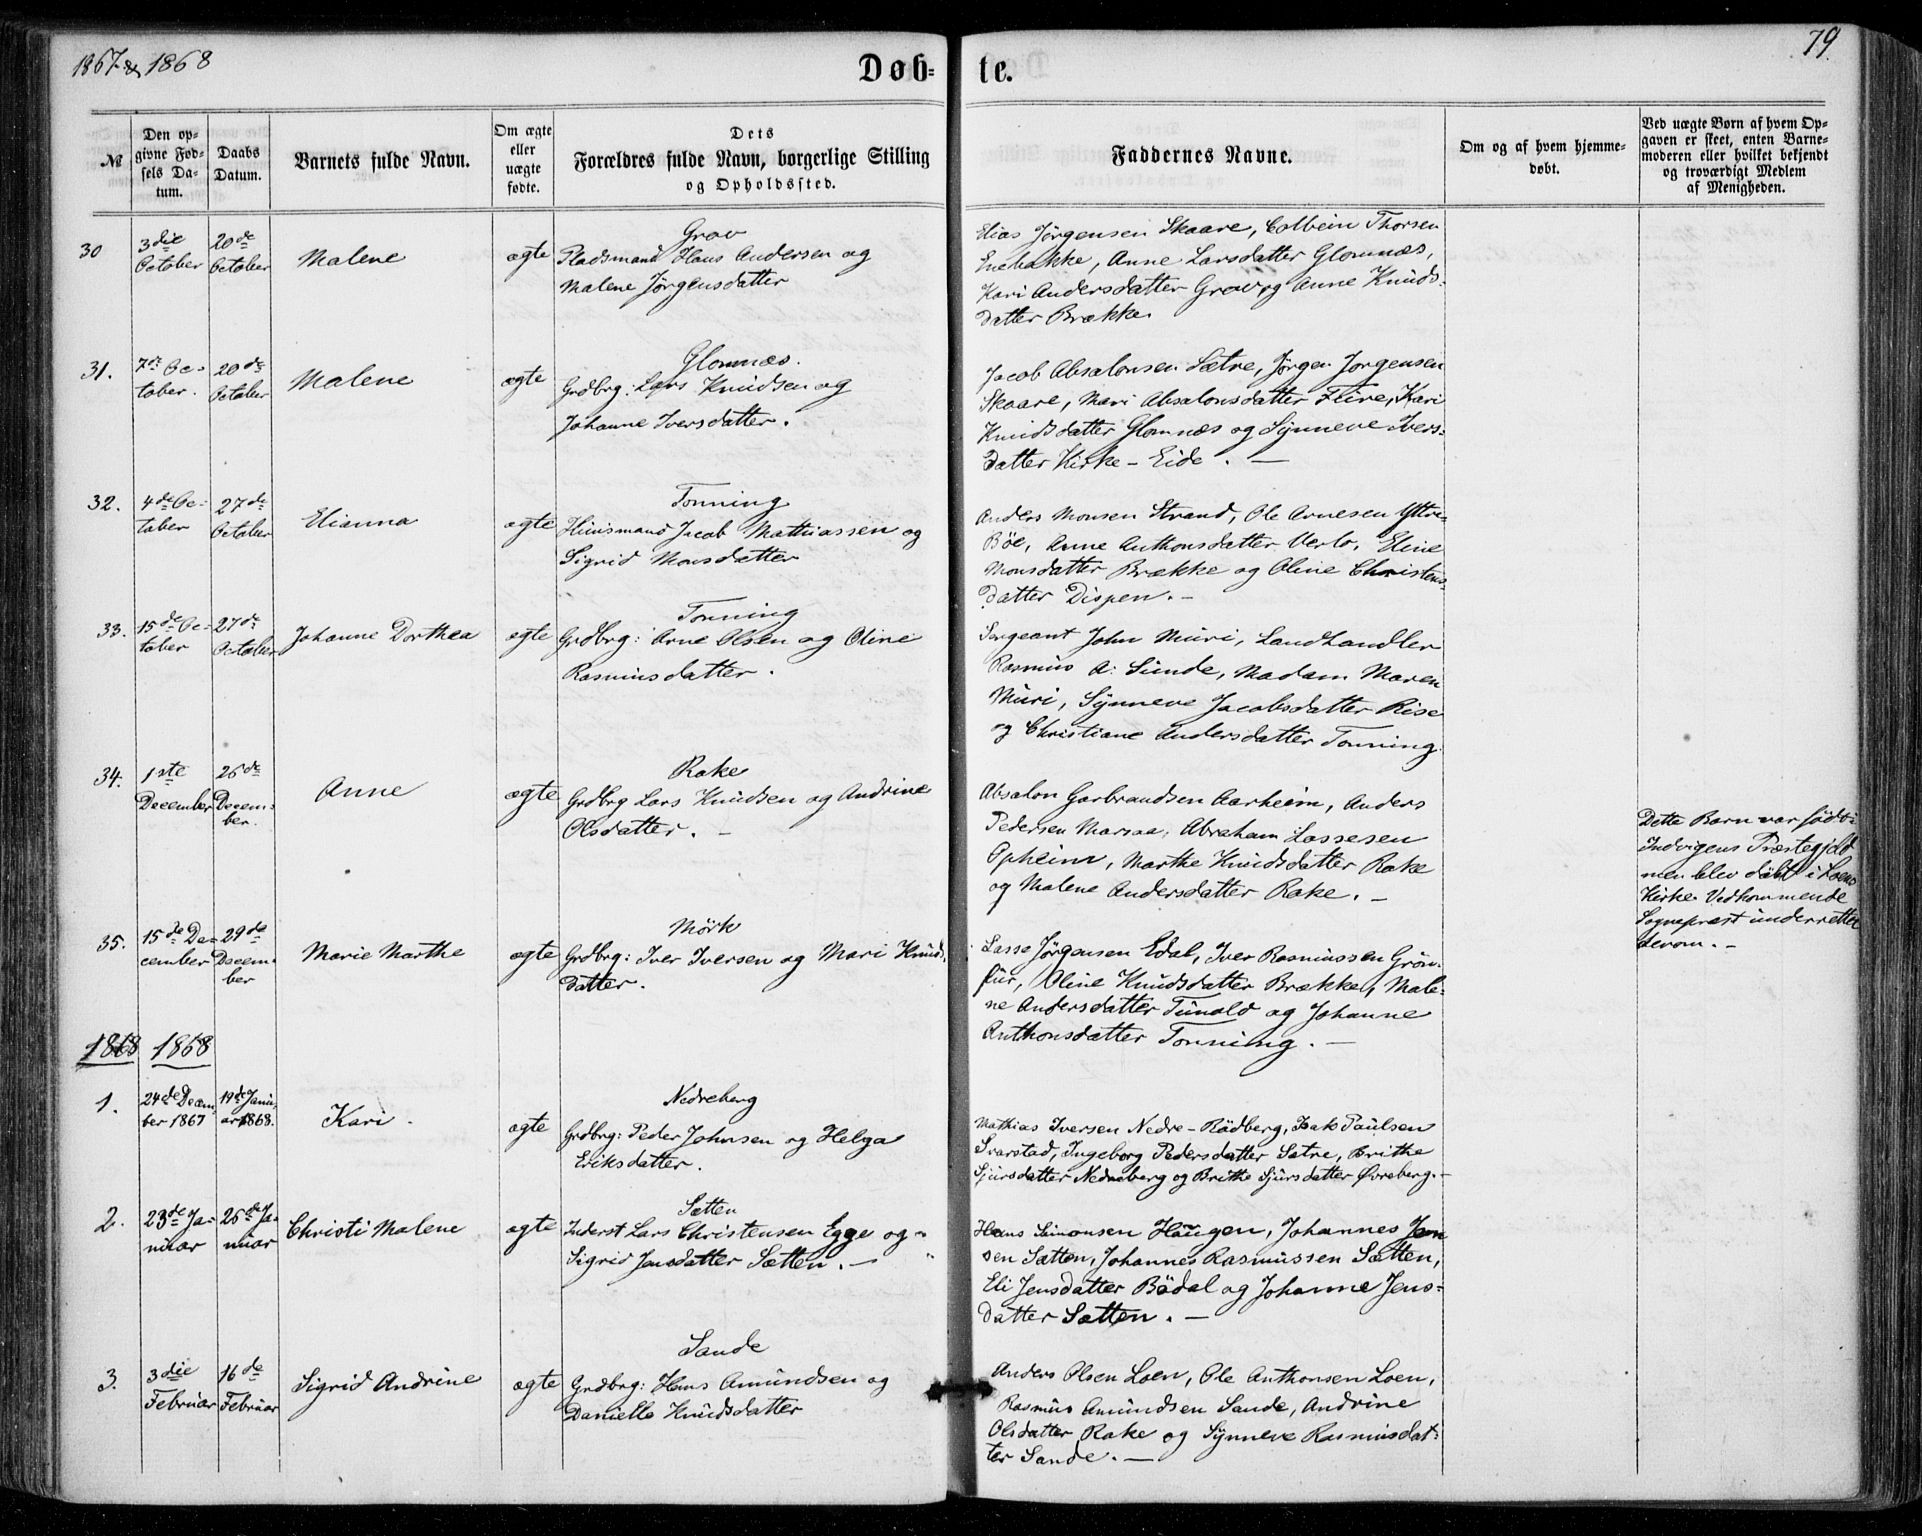 1867 & 1868
Døb-
te.
79.
№
Den op-
givne Fød-
sels Da-
tum.
Daabs
Datum.
Barnets fulde Navn.
Om ægte
eller
uægte
fødte.
Dets
Forældres fulde Navn, borgerlige Stilling
og Opholdssted.
Faddernes Navne.
Om og af hvem hjemme-
døbt.
Ved uægte Børn af hvem Op-
gaven er skeet, enten Barne-
moderen eller hvilket bekjendt
og troværdigt Medlem
af Menigheden.
30
3die
October
20de
October
Malene
ægte
Grov
Pladsmand Hans Andersen og
Malene Jørgensdatter
Elias Jørgensen Skaare, Colbein Thorsen
Enebakke, Anne Larsdatter Glomnæs,
Kari Andersdatter Grov og Anne Knuds-
datter Brække.
31.
7de Oc-
tober.
20de
October
Malene
ægte
Glomnæs.
Grdbrg: Lars Knudsen og
Johanne Iversdatter.
Jacob Absalonsen Sætre, Jørgen Jorgensen
Skaare, Mari Absalonsdatter Flire, Kari
Knudsdatter Glomnæs og Synneve Ivers-
datter Kirke-Eide. —
32.
4de Oc-
tober
27de
October
Elianna
ægte
Tonning
Huusmand Jacob Mathiassen og
Sigrid Monsdatter
Anders Monsen Strand, Ole Arnesen Yttre-
Böe, Anne Anthonsdatter Verlo, Eline
Monsdatter Brække og Oline Christens-
datter Dispen. -
33.
15de Oc-
tober
27de
October
Johanne Dorthea
ægte
Tonning
Grdbrg: Arne Olsen og Oline
Rasmusdatter.
Sergeant John Muri, Landhandler
Rasmus A: Sunde, Madam Maren
Muri, Synneve Jacobsdatter Rise
og Christiane Andersdatter Tonning.
34.
1ste
December
26de
Decem-
ber.
Anne
ægte
Rake
Grdbrg Lars Knudsen og Andrine
Olsdatter. -
Absalon Garbrandsen Aarheim, Anders
Pedersen Marsaa, Abraham Lassesen
Opheim, Marthe Knudsdatter Rake
og Malene Andersdatter Rake. -
Dette Barn var født i
Indvigens Præstegjeld
men blev døbt i Loens
Kirke. Vedkommende
Sognepræst underrettet
derom. -
35.
15de De-
cember
29de
Decem-
ber
Marie Marthe
ægte
Mörk
Grdbrg: Iver Iversen og Mari Knuds-
datter.
Lasse Jørgensen Edal, Iver Rasmussen Grön-
fur, Oline Knudsdatter Brække, Male-
ne Andersdatter Tunold og Johanne
Anthonsdatter Tonning. —
1868 1868
1.
24de Decem-
ber 1867
19de Janu-
ar 1868.
Kari.
ægte
Nedreberg
Grdbrg: Peder Johnsen og Helga
Eriksdatter.
Mathias Iversen Nedre-Rödberg, Isak Paulsen
Svarstad, Ingeborg Pedersdatter Sætre, Brithe
Sjursdatter Nedreberg og Brithe Sjursdatter Øvreberg. -
2.
23de Ja-
nuar
26de Ja-
nuar
Christi Malene
ægte
Sætten
Inderst Lars Christensen Egge og
Sigrid Jensdatter Sætten. —
Hans Simonsen Haugen, Johannes Jen
sen Sætten, Johannes Rasmussen Sætten,
Eli Jensdatter Bödal og Johanne Jens-
datter Sætten. —
3.
3die
Februar
16de
Februar
Sigrid Andrine
ægte
Sande
Grdbrg: Hans Amundsen og
Danielle Knudsdatter
Anders Olsen Loen, Ole Anthonsen Loen,
Rasmus Amundsen Sande, Andrine
Olsdatter Rake og Synneve Rasmusdat-
ter Sande. —